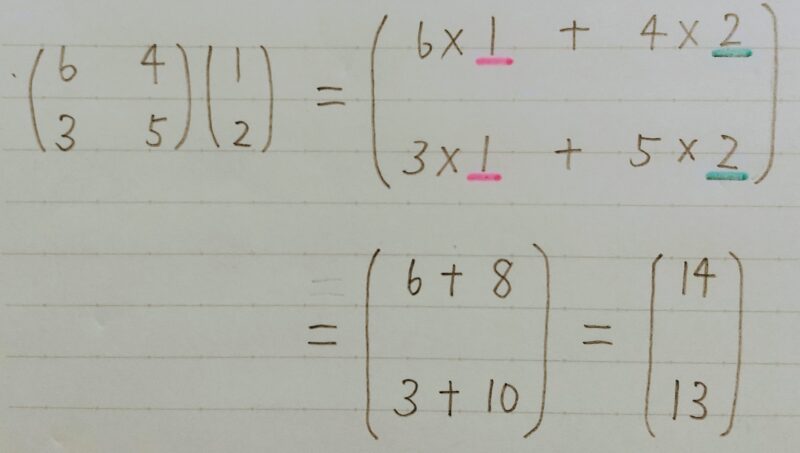 (6 4
3 5) (1
2) = (6×1 + 4×2
3×1 + 5×2)
= (6+8
3+10) = (14
13)